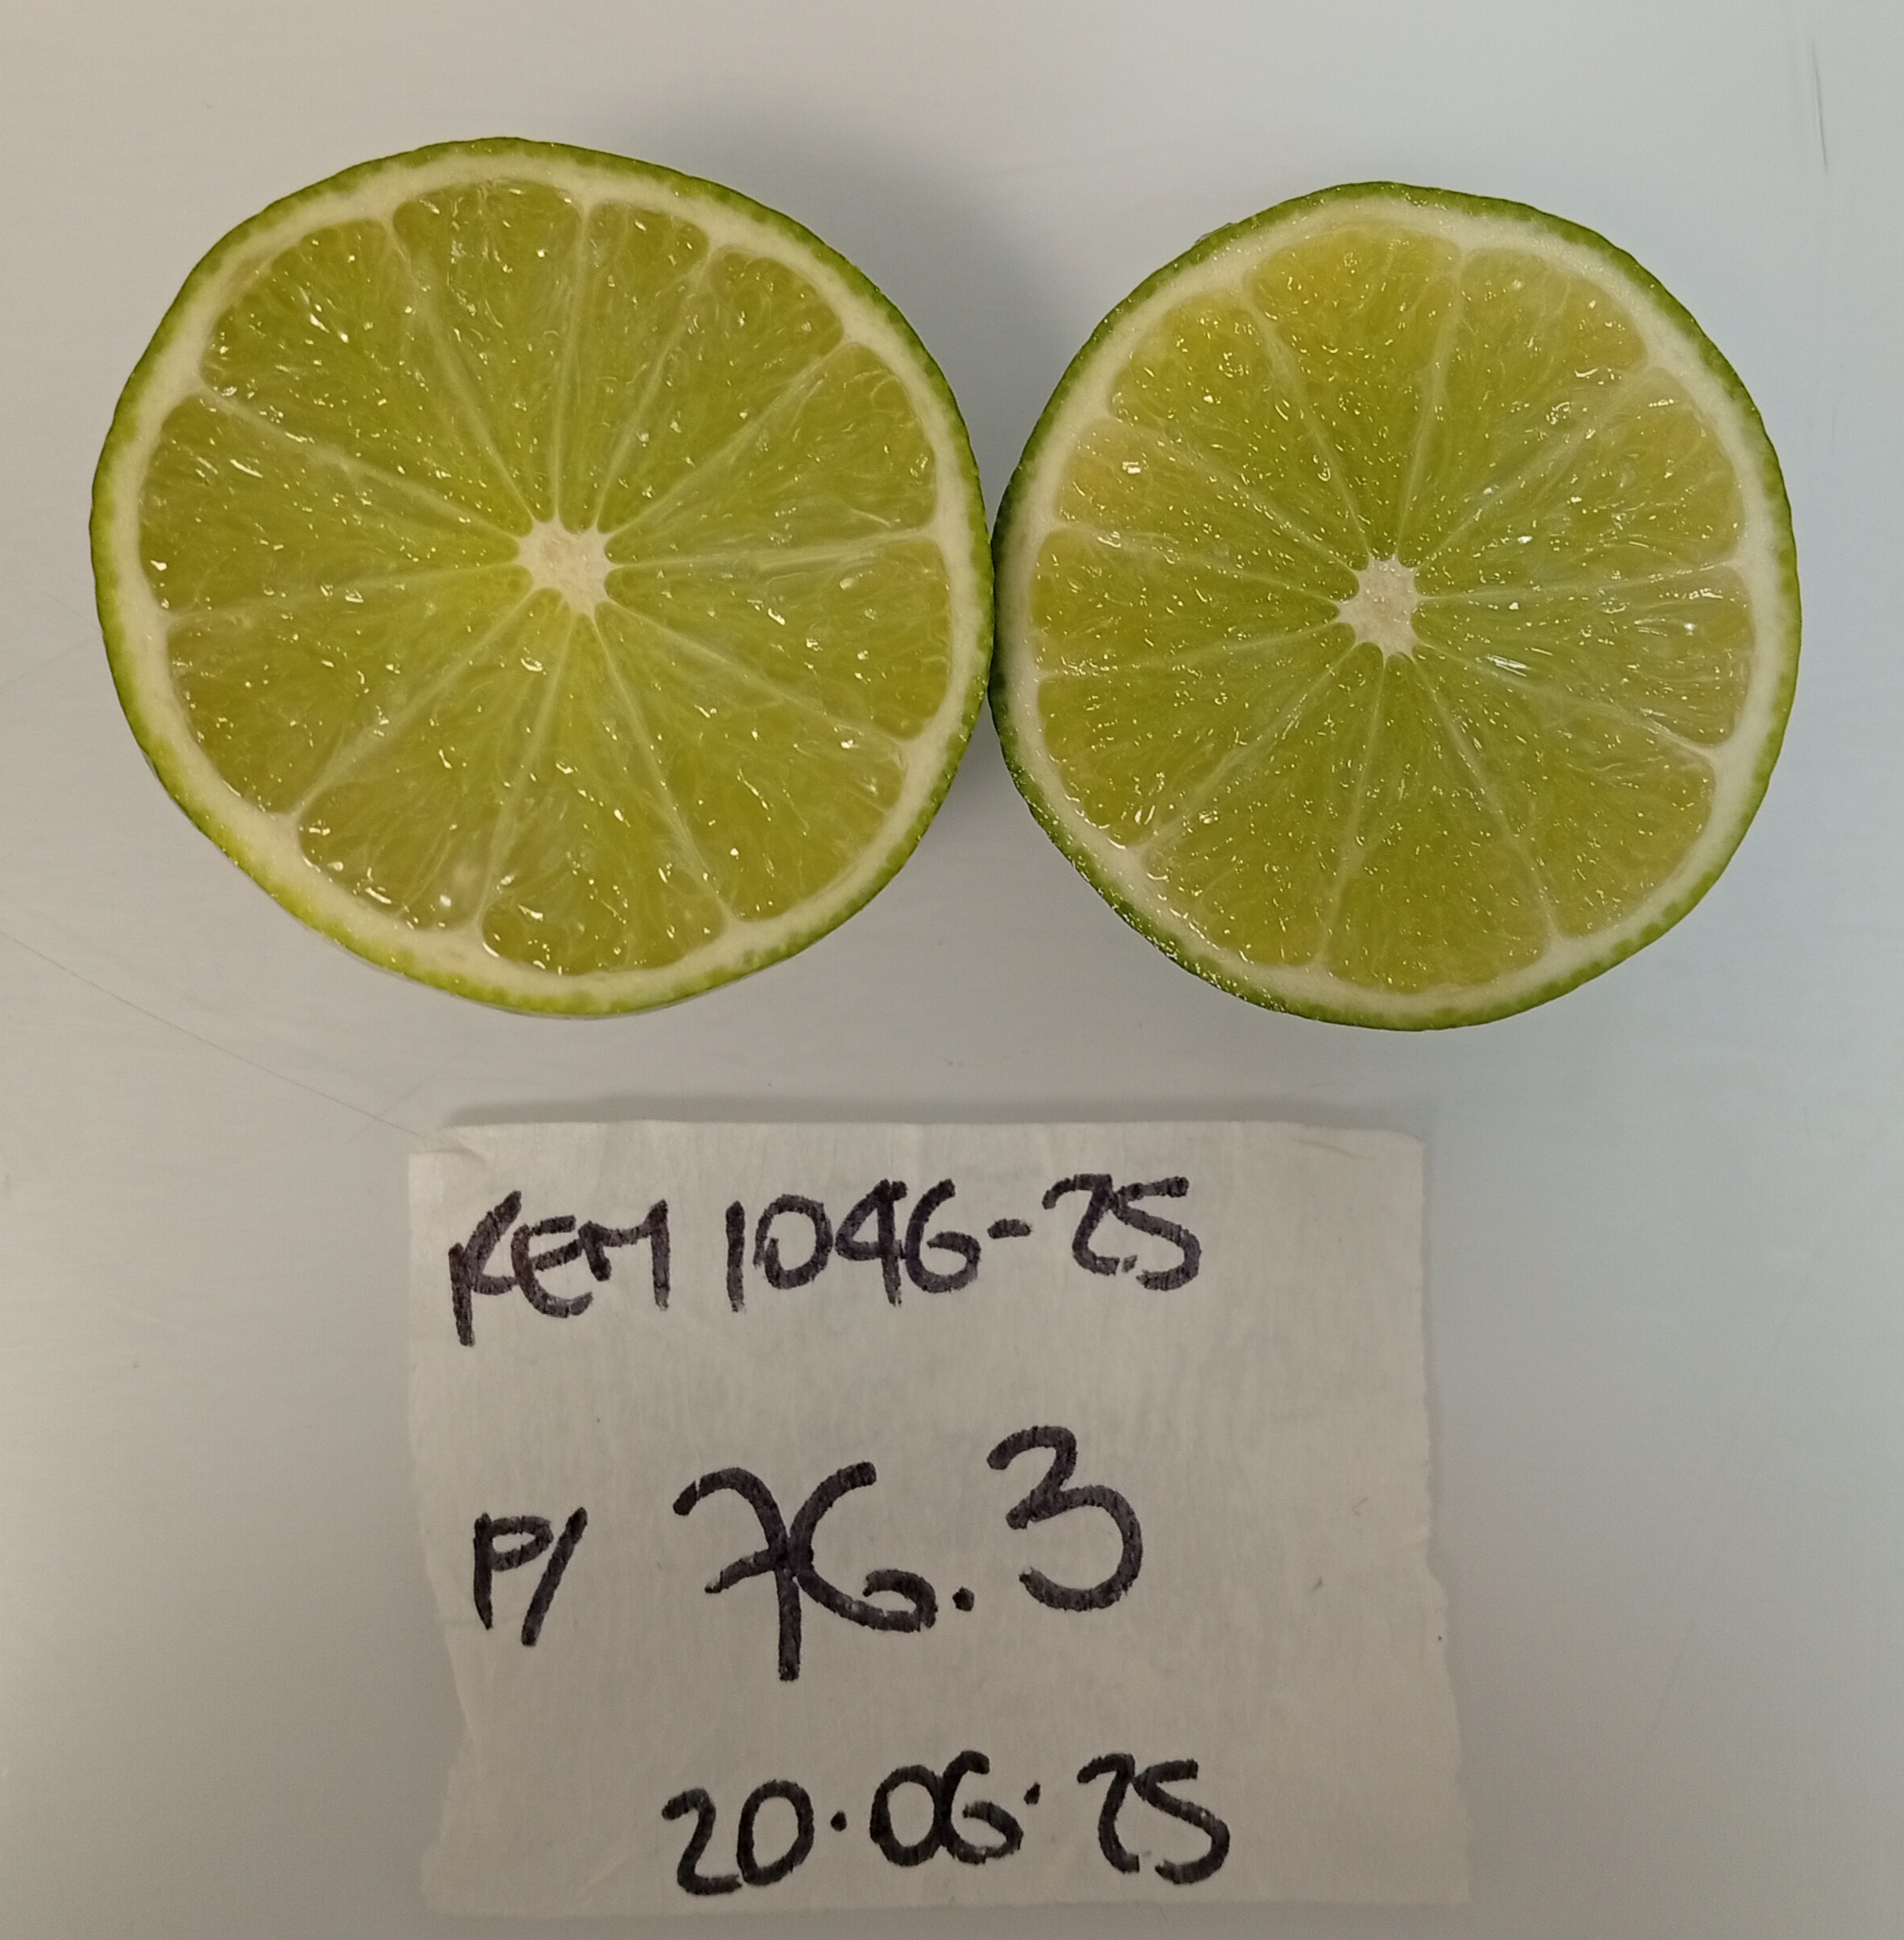 REM 1046-25
P/ 76.3
20.06.25